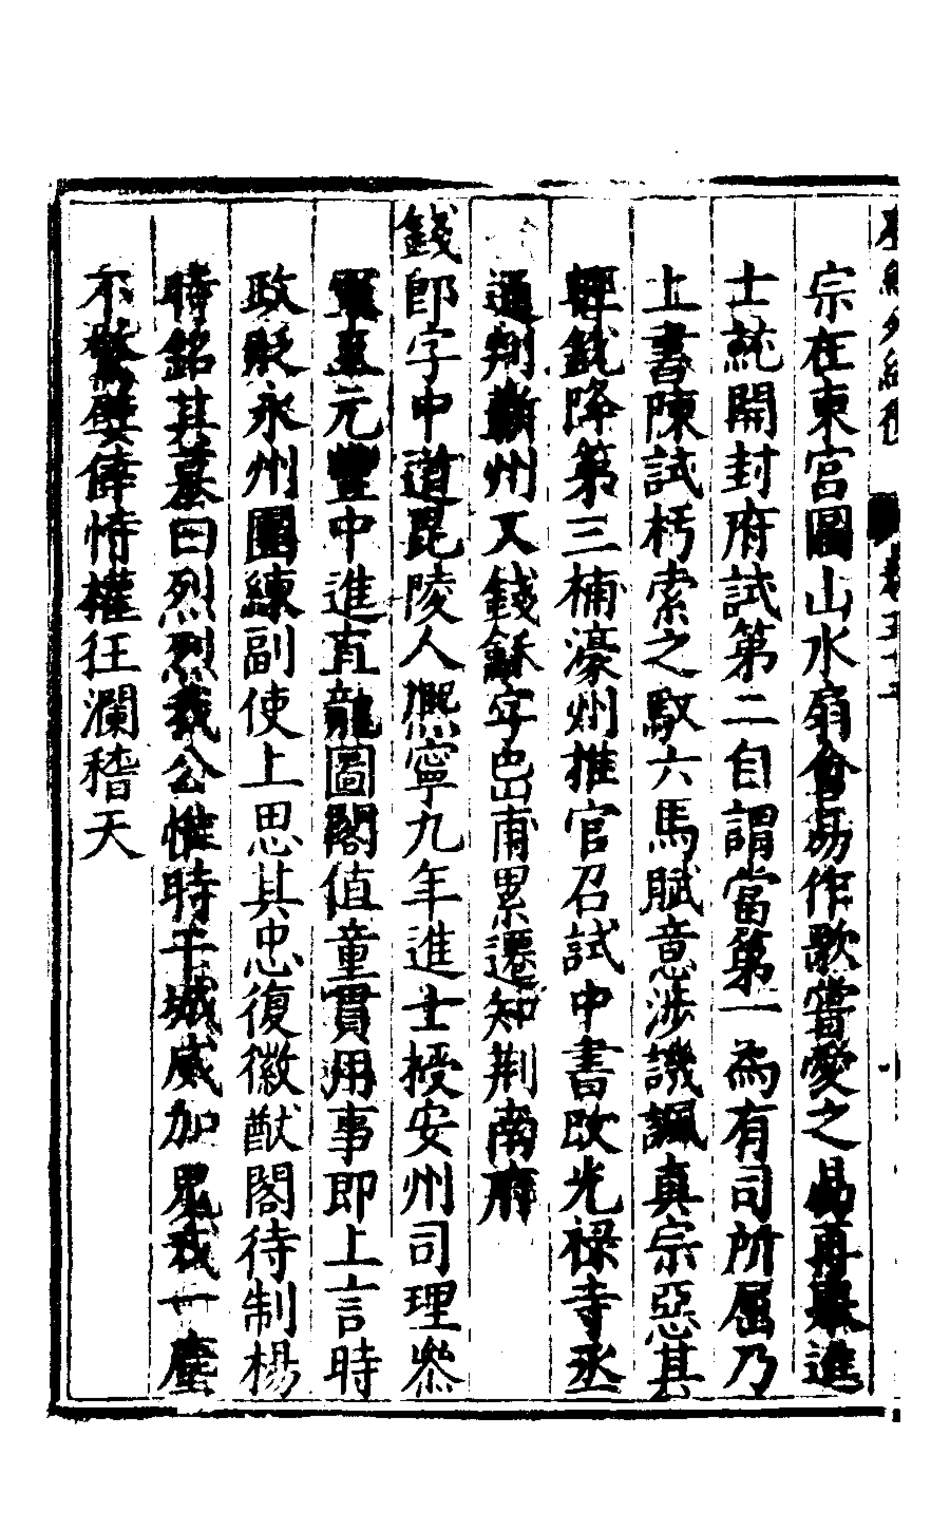 宗在東宮圖山水扇會易作歌嘗愛之易再舉進
士就開封府試第二自謂當第一為有司所屈乃
上書陳試朽索之馭六馬賦意涉譏諷真宗惡其
輕銳降第三補濠州推官召試中書改光祿寺丞
通判蘄州又錢龢字邑甫累遷知荆南府
錢即字中道毘陵人熈寧九年進士授安州司理叅
軍至元豐中進直龍圖閣值童貫用事即上言時
政貶永州團練副使上思其忠復徽猷閣待制楊
時銘其墓曰烈烈我公惟時干城威加鬼戎一塵
不驚嬖倖恃權狂瀾稽天